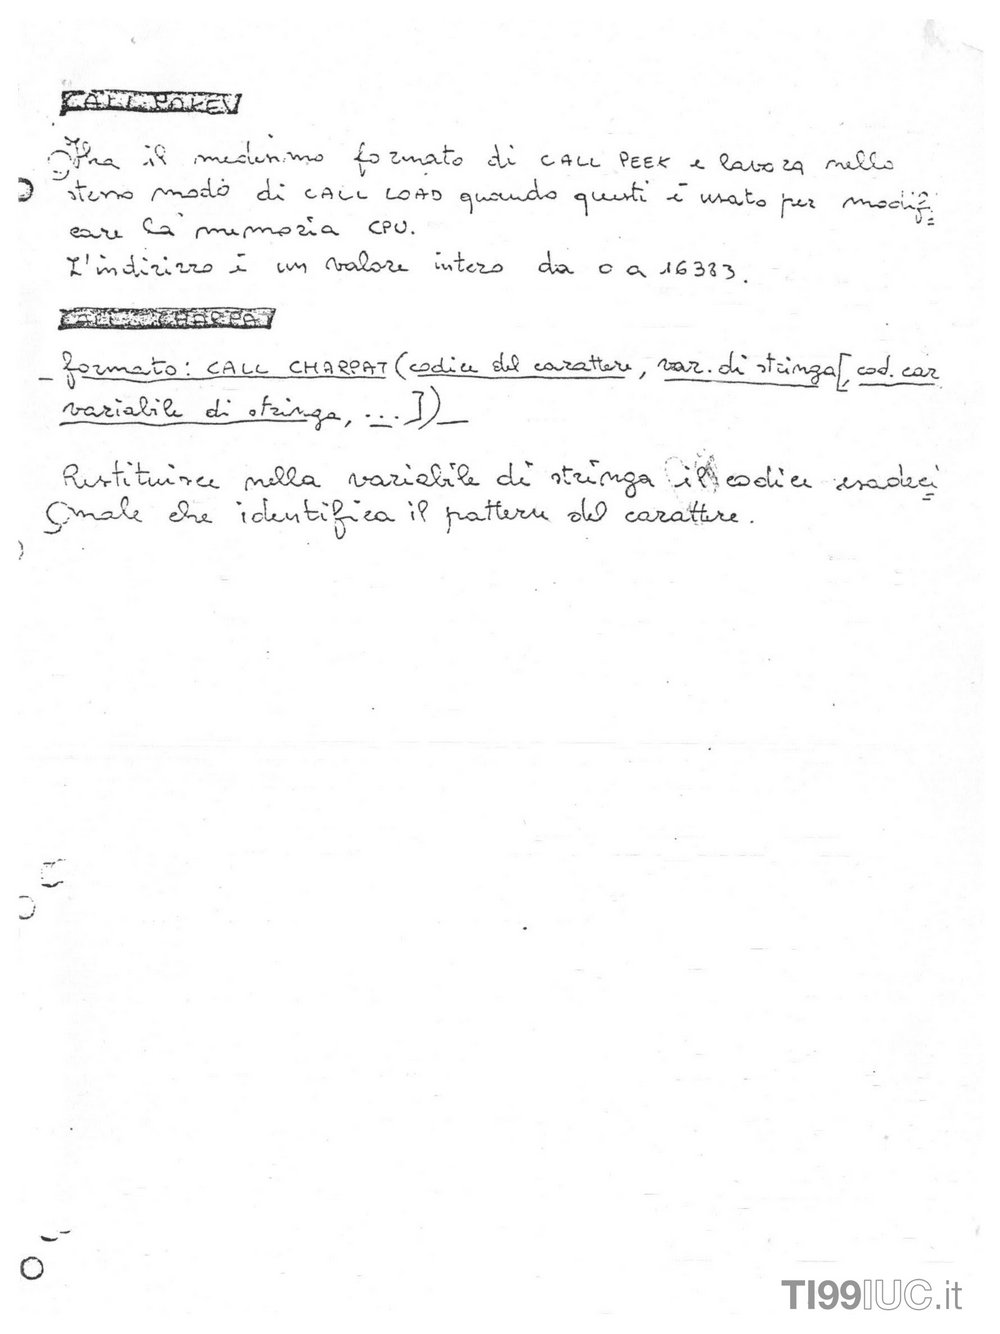 CALL POKEV
Ha il medesimo formato di CALL PEEK e lavora nello
stesso modo di CALL LOAD quando questi è usato per modifi=
care la memoria CPU.
L'indirizzo è un valore intero da 0 a 16383.
CALL CHARPAT
formato: CALL CHARPAT (codice del carattere, var. di stringa[, cod. car
variabile di stringa, ...])
Restituisce nella variabile di stringa il codice esadeci=
male che identifica il pattern del carattere.
TI99IUC.it